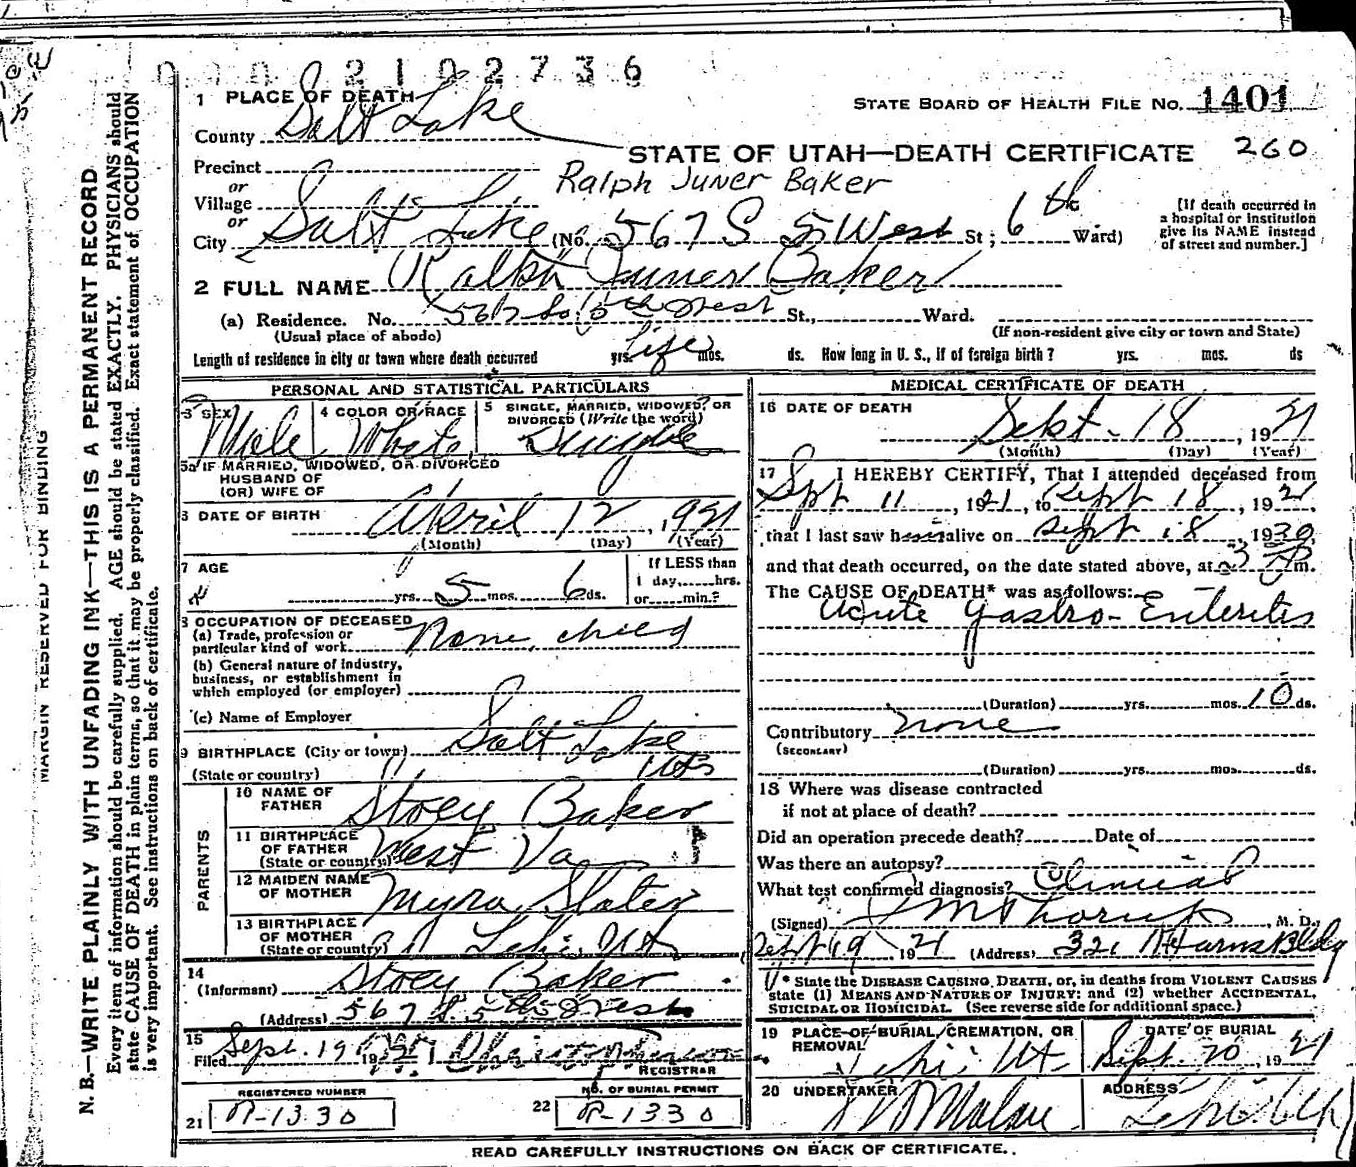 0002102736
1 PLACE OF DEATH
STATE BOARD OF HEALTH FILE NO. 1401
County Salt Lake
STATE OF UTAH—DEATH CERTIFICATE 260
Precinct
or
Ralph Juner Baker
Village Salt Lake
or
City Salt Lake (No. 567 S 5 West St; 6th Ward)
[If death occurred in
a hospital or institution
give its NAME instead
of street and number.]
2 FULL NAME Ralph Juner Baker
(a) Residence. No. 567 So 5th West St., Ward.
(Usual place of abode) (If non-resident give city or town and State)
Length of residence in city or town where death occurred yrs. life mos. ds. How long in U. S., if of foreign birth? yrs. mos. ds
PERSONAL AND STATISTICAL PARTICULARS
3 SEX Male
4 COLOR OR RACE White
5 SINGLE, MARRIED, WIDOWED, OR
DIVORCED (Write the word) Single
5a IF MARRIED, WIDOWED, OR DIVORCED
HUSBAND OF
(OR) WIFE OF
6 DATE OF BIRTH April 12, 1921
(Month) (Day) (Year)
7 AGE
yrs. 5 mos. 6 ds.
If LESS than
1 day, hrs.
or min.?
8 OCCUPATION OF DECEASED
(a) Trade, profession or
particular kind of work None, child
(b) General nature of industry,
business, or establishment in
which employed (or employer)
(c) Name of Employer
9 BIRTHPLACE (City or town) Salt Lake
(State or country) Uts
PARENTS
10 NAME OF
FATHER Stoey Baker
11 BIRTHPLACE
OF FATHER
(State or country) West Va
12 MAIDEN NAME
OF MOTHER Myra Slater
13 BIRTHPLACE
OF MOTHER
(State or country) Lehi, Ut
14
(Informant) Stoey Baker
(Address) 567 S. 5th West
15
Filed Sept. 19 192
REGISTRAR
REGISTERED NUMBER
21 R-1330
NO. OF BURIAL PERMIT
22 R-1330
MEDICAL CERTIFICATE OF DEATH
16 DATE OF DEATH
Sept. 18, 1921
(Month) (Day) (Year)
17 I HEREBY CERTIFY, That I attended deceased from
Spt 11, 1921, to Sept 18, 1921
that I last saw h alive on Sept 18, 1930
and that death occurred, on the date stated above, at 3 P m.
The CAUSE OF DEATH* was as follows:
Acute Gastro-Enteritis
(Duration) yrs. mos. 10 ds.
Contributory None
(SECONDARY)
(Duration) yrs. mos. ds.
18 Where was disease contracted
if not at place of death?
Did an operation precede death? Date of
Was there an autopsy?
What test confirmed diagnosis? Clinical
(Signed) Thorup, M. D.
Sept 19 1921 (Address) 321 Bldg
* State the DISEASE CAUSING DEATH, or, in deaths from VIOLENT CAUSES
state (1) MEANS AND NATURE OF INJURY; and (2) whether ACCIDENTAL,
SUICIDAL OR HOMICIDAL. (See reverse side for additional space.)
19 PLACE OF BURIAL, CREMATION, OR
REMOVAL Lehi Ut
DATE OF BURIAL
Sept. 20, 1921
20 UNDERTAKER
ADDRESS
Lehi, Utah
READ CAREFULLY INSTRUCTIONS ON BACK OF CERTIFICATE.
MARGIN RESERVED FOR BINDING
N. B.—WRITE PLAINLY WITH UNFADING INK—THIS IS A PERMANENT RECORD
Every item of information should be carefully supplied. AGE should be stated EXACTLY. PHYSICIANS should
state CAUSE OF DEATH in plain terms, so that it may be properly classified. Exact statement of OCCUPATION
is very important. See instructions on back of certificate.